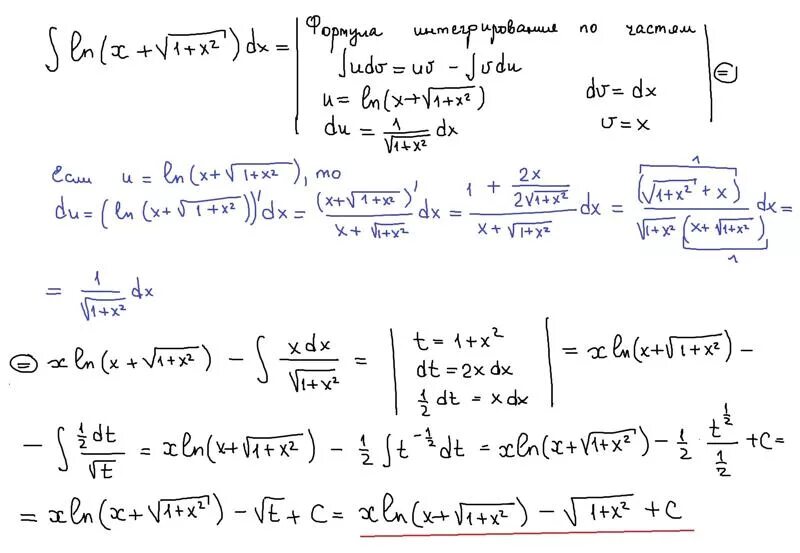 ∫ ln(x + √(1+x²)) dx = | Формула интегрирование по частям
∫udv = uv − ∫vdu
u = ln(x+√(1+x²)) dv = dx
du = 1/√(1+x²) dx v = x | ⊜
Если u = ln(x+√(1+x²)), то
du = (ln(x+√(1+x²)))' dx = (x+√(1+x²))'/(x+√(1+x²)) dx = (1 + 2x/(2√(1+x²)))/(x+√(1+x²)) dx = (√(1+x²)+x)/(√(1+x²)(x+√(1+x²))) dx = 1 1
= 1/√(1+x²) dx
⊜ x ln(x+√(1+x²)) − ∫ xdx/√(1+x²) = | t = 1+x² dt = 2x dx ½ dt = x dx | = x ln(x+√(1+x²)) −
− ∫ ½dt/√t = x ln(x+√(1+x²)) − ½ ∫ t^(−½) dt = x ln(x+√(1+x²)) − ½ · t^(½)/½ + C =
= x ln(x+√(1+x²)) − √t + C = x ln(x+√(1+x²)) − √(1+x²) + C